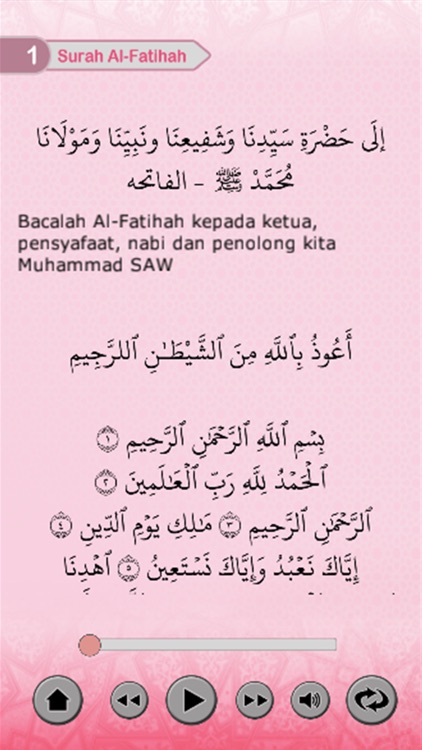 1 Surah Al-Fatihah
إِلَى حَضْرَةِ سَيِّدِنَا وَشَفِيعِنَا ونَبِيِّنَا وَمَوْلَانَا
مُحَمَّدْ ﷺ - الفاتحه
Bacalah Al-Fatihah kepada ketua,
pensyafaat, nabi dan penolong kita
Muhammad SAW
أَعُوذُ بِٱللَّهِ مِنَ ٱلشَّيْطَـٰنِ ٱللرَّجِيمِ
بِسْمِ ٱللَّهِ ٱلرَّحْمَـٰنِ ٱلرَّحِيمِ ١
ٱلْحَمْدُ لِلَّهِ رَبِّ ٱلْعَـٰلَمِينَ ٢
ٱلرَّحْمَـٰنِ ٱلرَّحِيمِ ٣ مَـٰلِكِ يَوْمِ ٱلدِّينِ ٤
إِيَّاكَ نَعْبُدُ وَإِيَّاكَ نَسْتَعِينُ ٥ ٱهْدِنَا